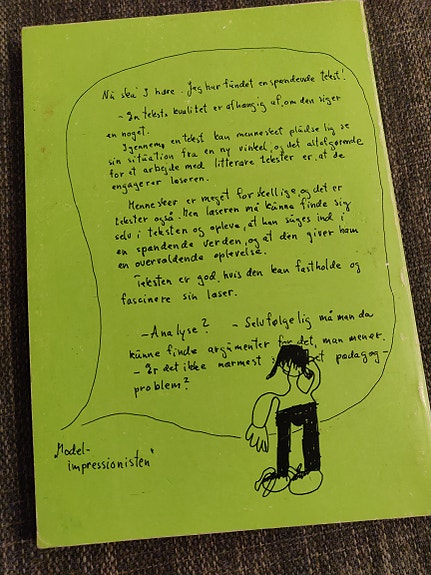 Nu ska' I høre. Jeg har fundet en spændende tekst!
- En teksts kvalitet er afhængig af, om den siger
en noget.
Igennem en tekst kan mennesket pludselig se
sin situation fra en ny vinkel, og det altafgørende
for et arbejde med litterære tekster er, at de
engagerer læseren.
Mennesker er meget forskellige og det er
tekster også. Men læseren må kunne finde sig
selv i teksten og opleve, at han suges ind i
en spændende verden, og at den giver ham
en overvældende oplevelse.
Teksten er god, hvis den kan fastholde og
fascinere sin læser.
- Analyse? - Selvfølgelig må man da
kunne finde argumenter for det, man mener.
- Er det ikke nærmest et pædagog-
problem?
"Model-
impressionisten"